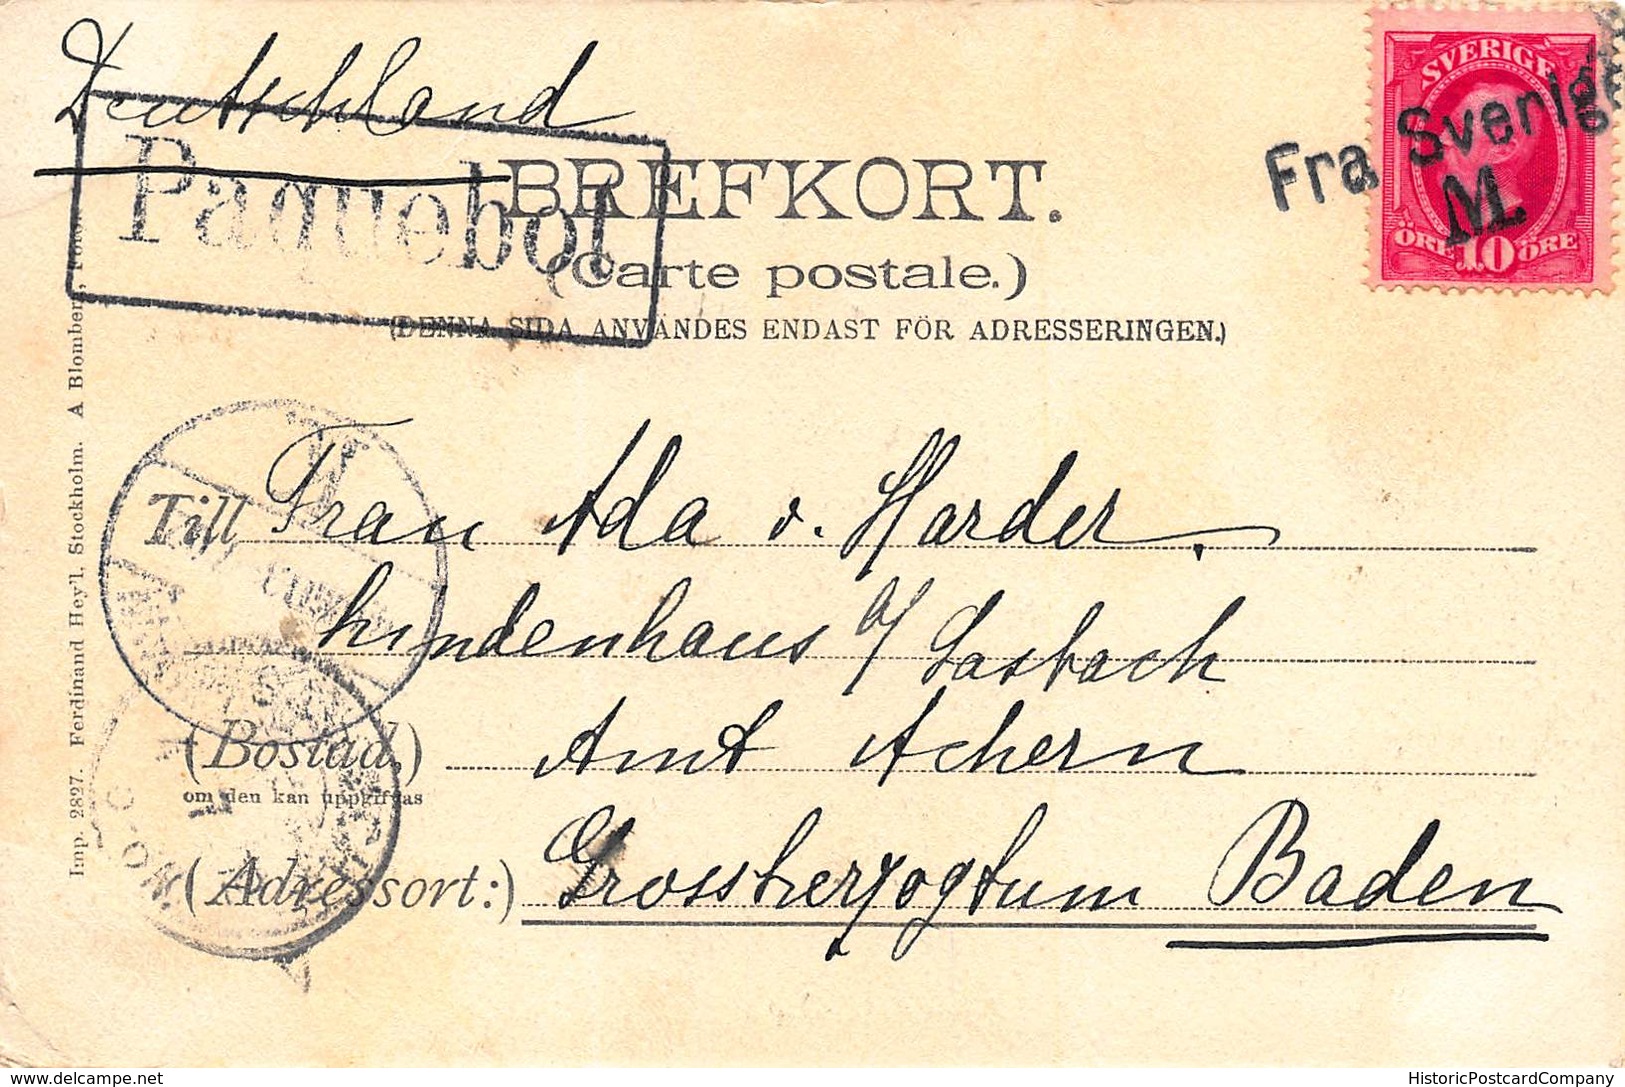 Deutschland
Paquebot
BREFKORT.
(Carte postale.)
(DENNA SIDA ANVÄNDES ENDAST FÖR ADRESSERINGEN.)
SVERIGE
ÖRE 10 ÖRE
Fra Sverige
M.
Till Frau Ada v. Harder.
Lindenhaus b/ Sasbach
(Bostad,) Amt Achern
om den kan uppgifvas
(Adressort:) Grossherzogtum Baden
Imp. 2827. Ferdinand Hey'l, Stockholm. A Blomberg, Foto.
delcampe.net
HistoricPostcardCompany